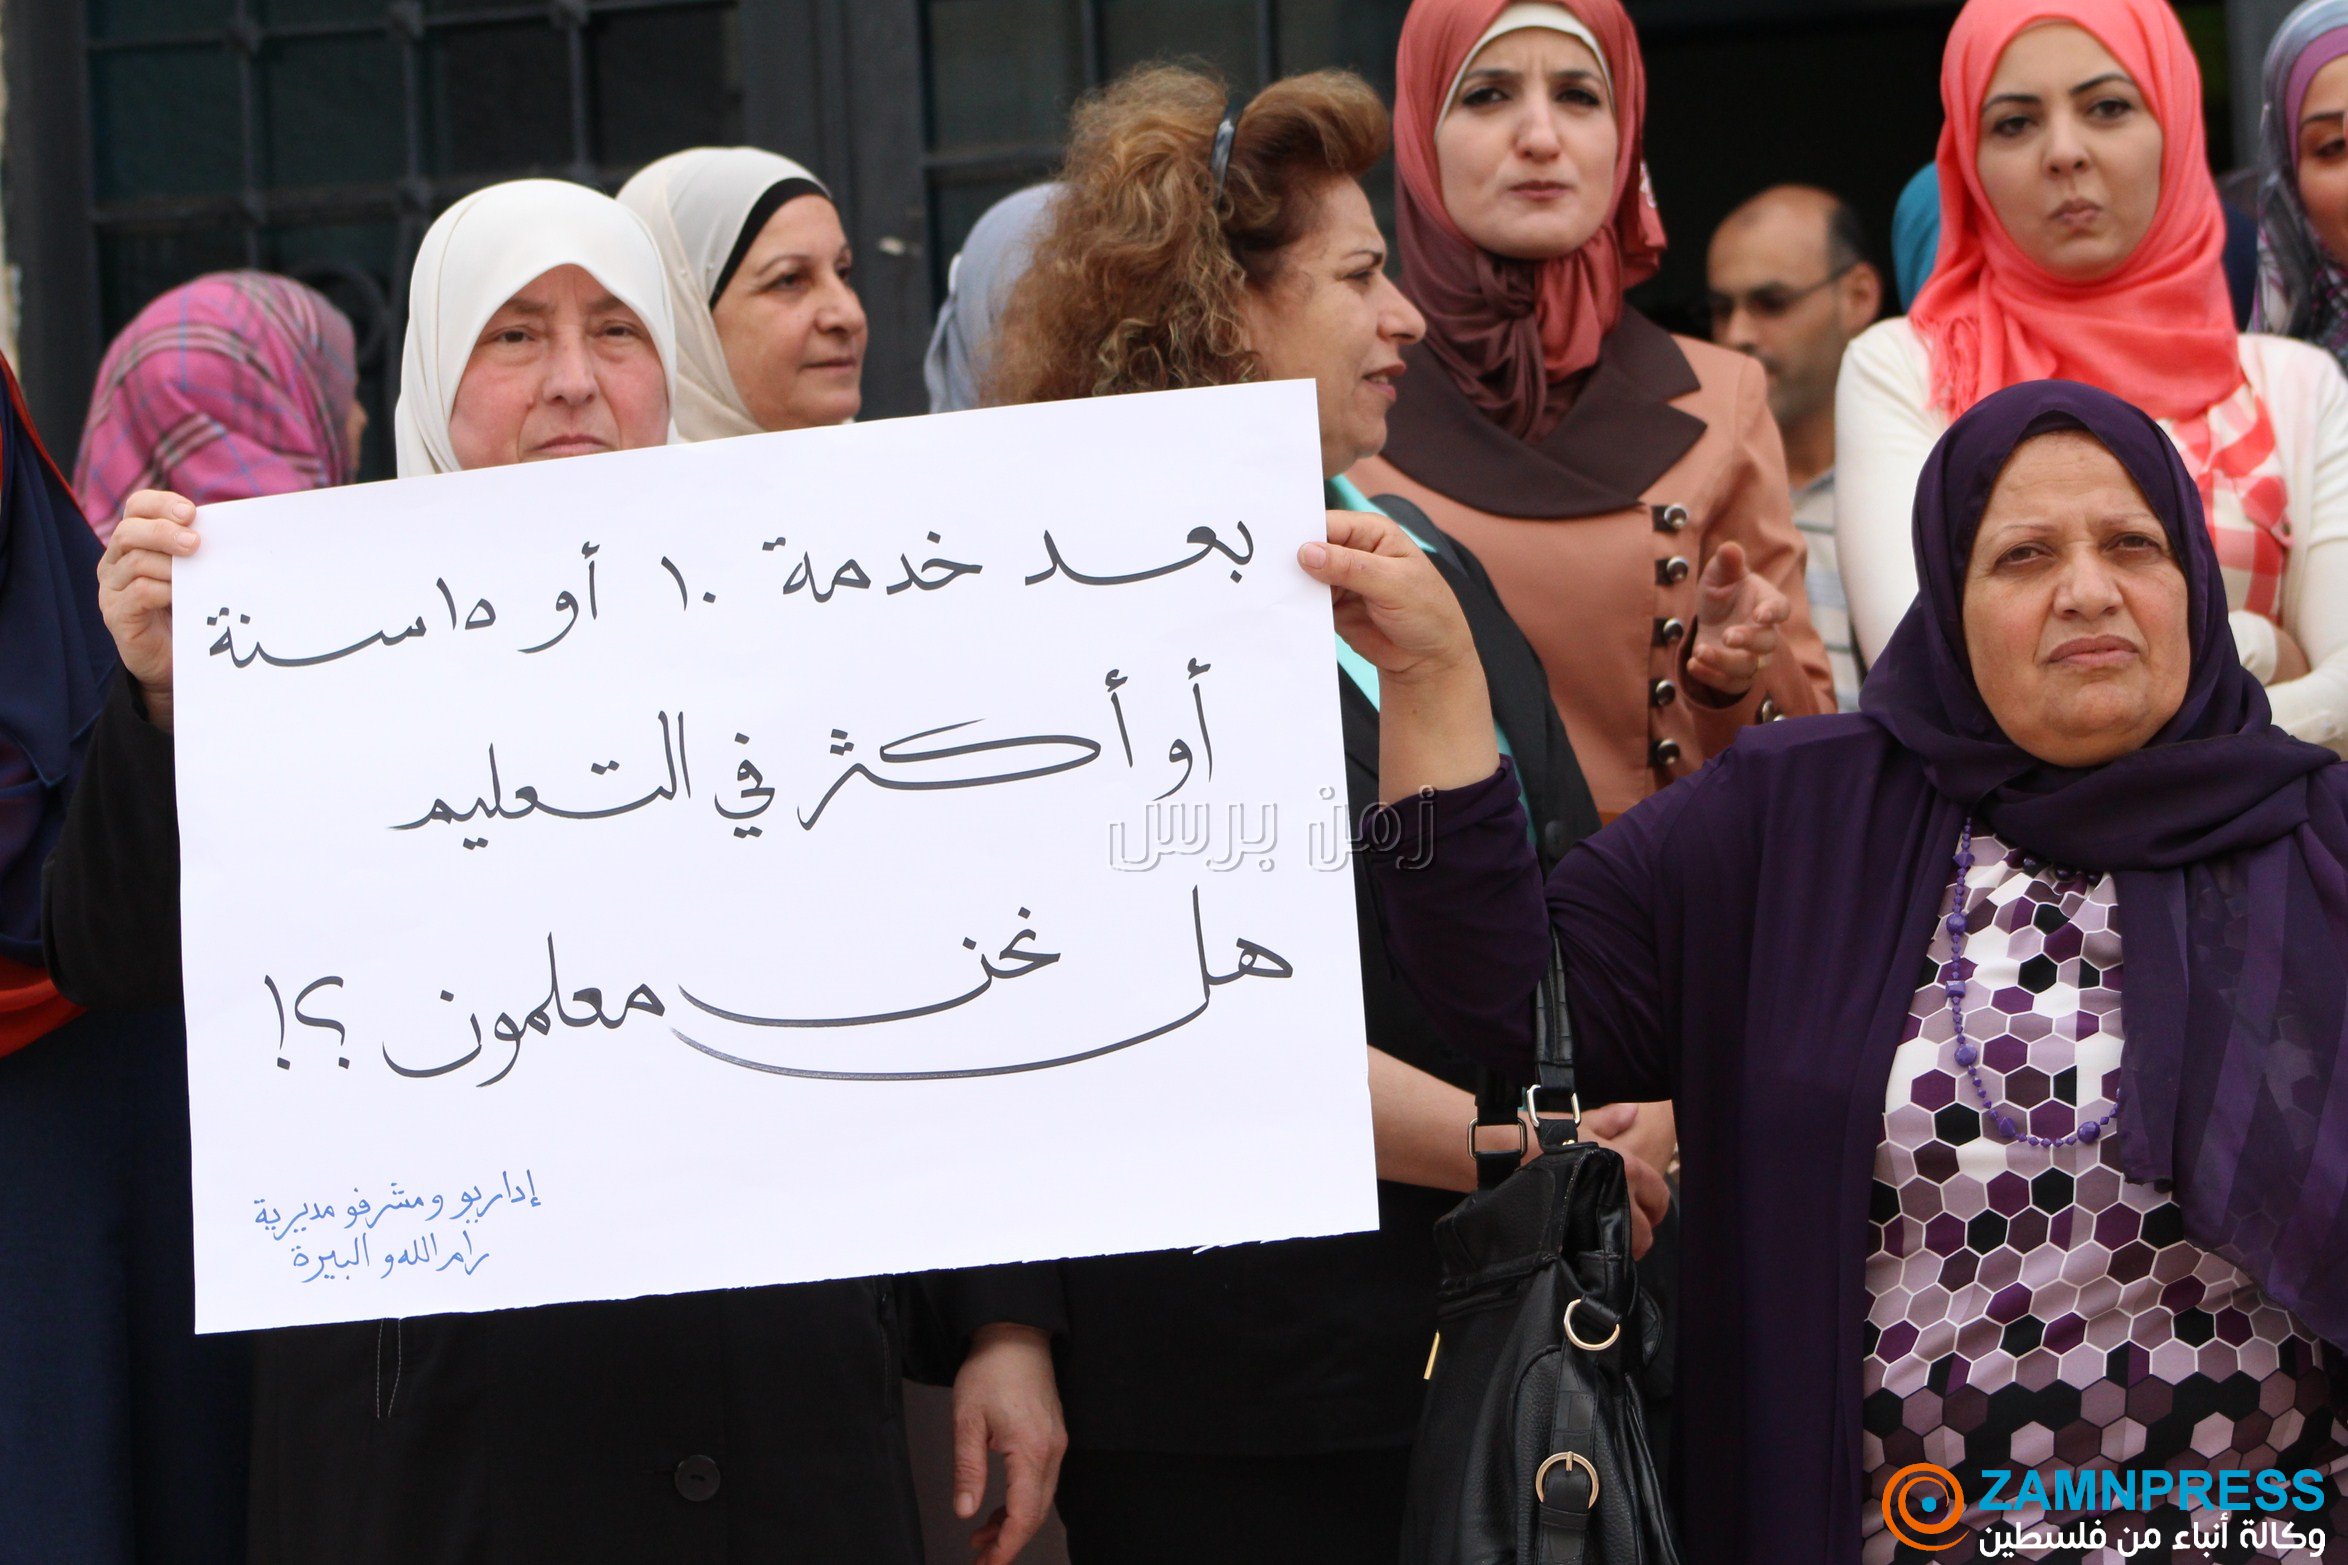 بعد خدمة ١٠ أو ١٥ سنة
أو أكثر في التعليم
هل نحن معلمون ؟!
إداريو ومشرفو مديرية
رام الله و البيرة
زمن برس
ZAMNPRESS
وكالة أنباء من فلسطين